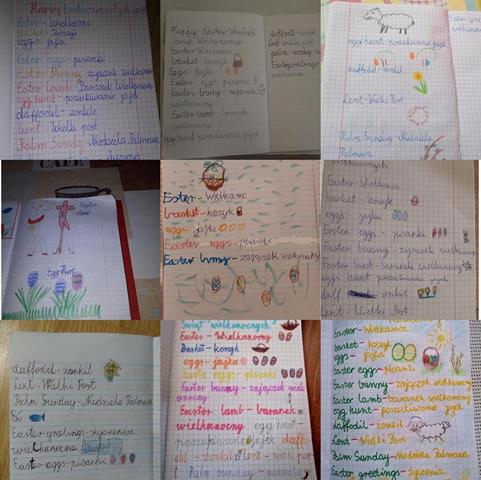 Happy Easter - wesołych świąt
Easter - Wielkanoc
Basket - Koszyk
eggs - jajka
Easter eggs - pisanki
Easter Bunny - zajączek wielkanocny
Easter Lamb - Baranek Wielkanocny
egg hunt - poszukiwanie jajek
daffodil - żonkil
Lent - Wielki post
Palm Sunday - Niedziela Palmowa
Happy Easter - Wesołych
Świąt Wielkanocnych
Easter - Wielkanoc
basket - koszyk
Eggs - Jajka
Easter eggs - pisanki
Easter bunny - zajączek
wielkanocny
Easter lamb - baranek
wielkanocny
egg hunt - poszukiwanie jajek
daffodil - żonkil
Easter greetings -
egg hunt - poszukiwanie jajek
daffodil - żonkil
Lent - Wielki Post
Palm Sunday - Niedziela
Palmowa
Easter
Egg Hunt
Easter - Wielkanoc
basket - koszyk
eggs - jajka
Easter eggs - pisanki
Easter bunny - zajączek wielkanocny
Easter - Wielkanoc
basket - koszyk
eggs - jajka
Easter eggs - pisanki
Easter bunny - zajączek wielkanocny
Easter lamb - baranek wielkanocny
egg hunt - poszukiwanie jajek
daff żonkil
Lent - Wielki Post
daffodil - żonkil
Lent - Wielki Post
Palm Sunday - Niedziela Palmowa
Easter eggs - pisanki
Świąt wielkanocnych
Easter - Wielkanoc
Basket - Koszyk
eggs - jajka
Easter eggs - pisanki
Easter bunny - zajączek wielk
anocny
Easter lamb - baranek
wielkanocny egg hunt -
poszukiwanie jajek daffo
dil - żonkil Lent - wielki pos
t Palm Sunday - niedziela
Easter - Wielkanoc
basket - koszyk
eggs - jajka
Easter eggs - pisanki
Easter bunny - zajączek wielkanocny
Easter lamb - baranek wielkanocny
egg hunt - poszukiwanie jajek
daffodil - żonkil
Lent - Wielki Post
Palm Sunday - Niedziela Palmowa
Easter greetings - życzenia